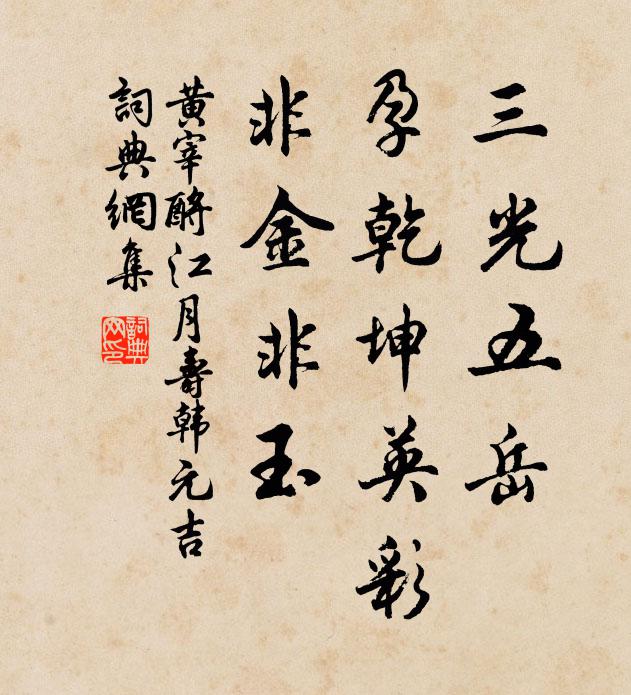 三光五岳
孕乾坤英彩
非金非玉
黄宰酹江月寿韩元吉
詞典網集
詞典网印